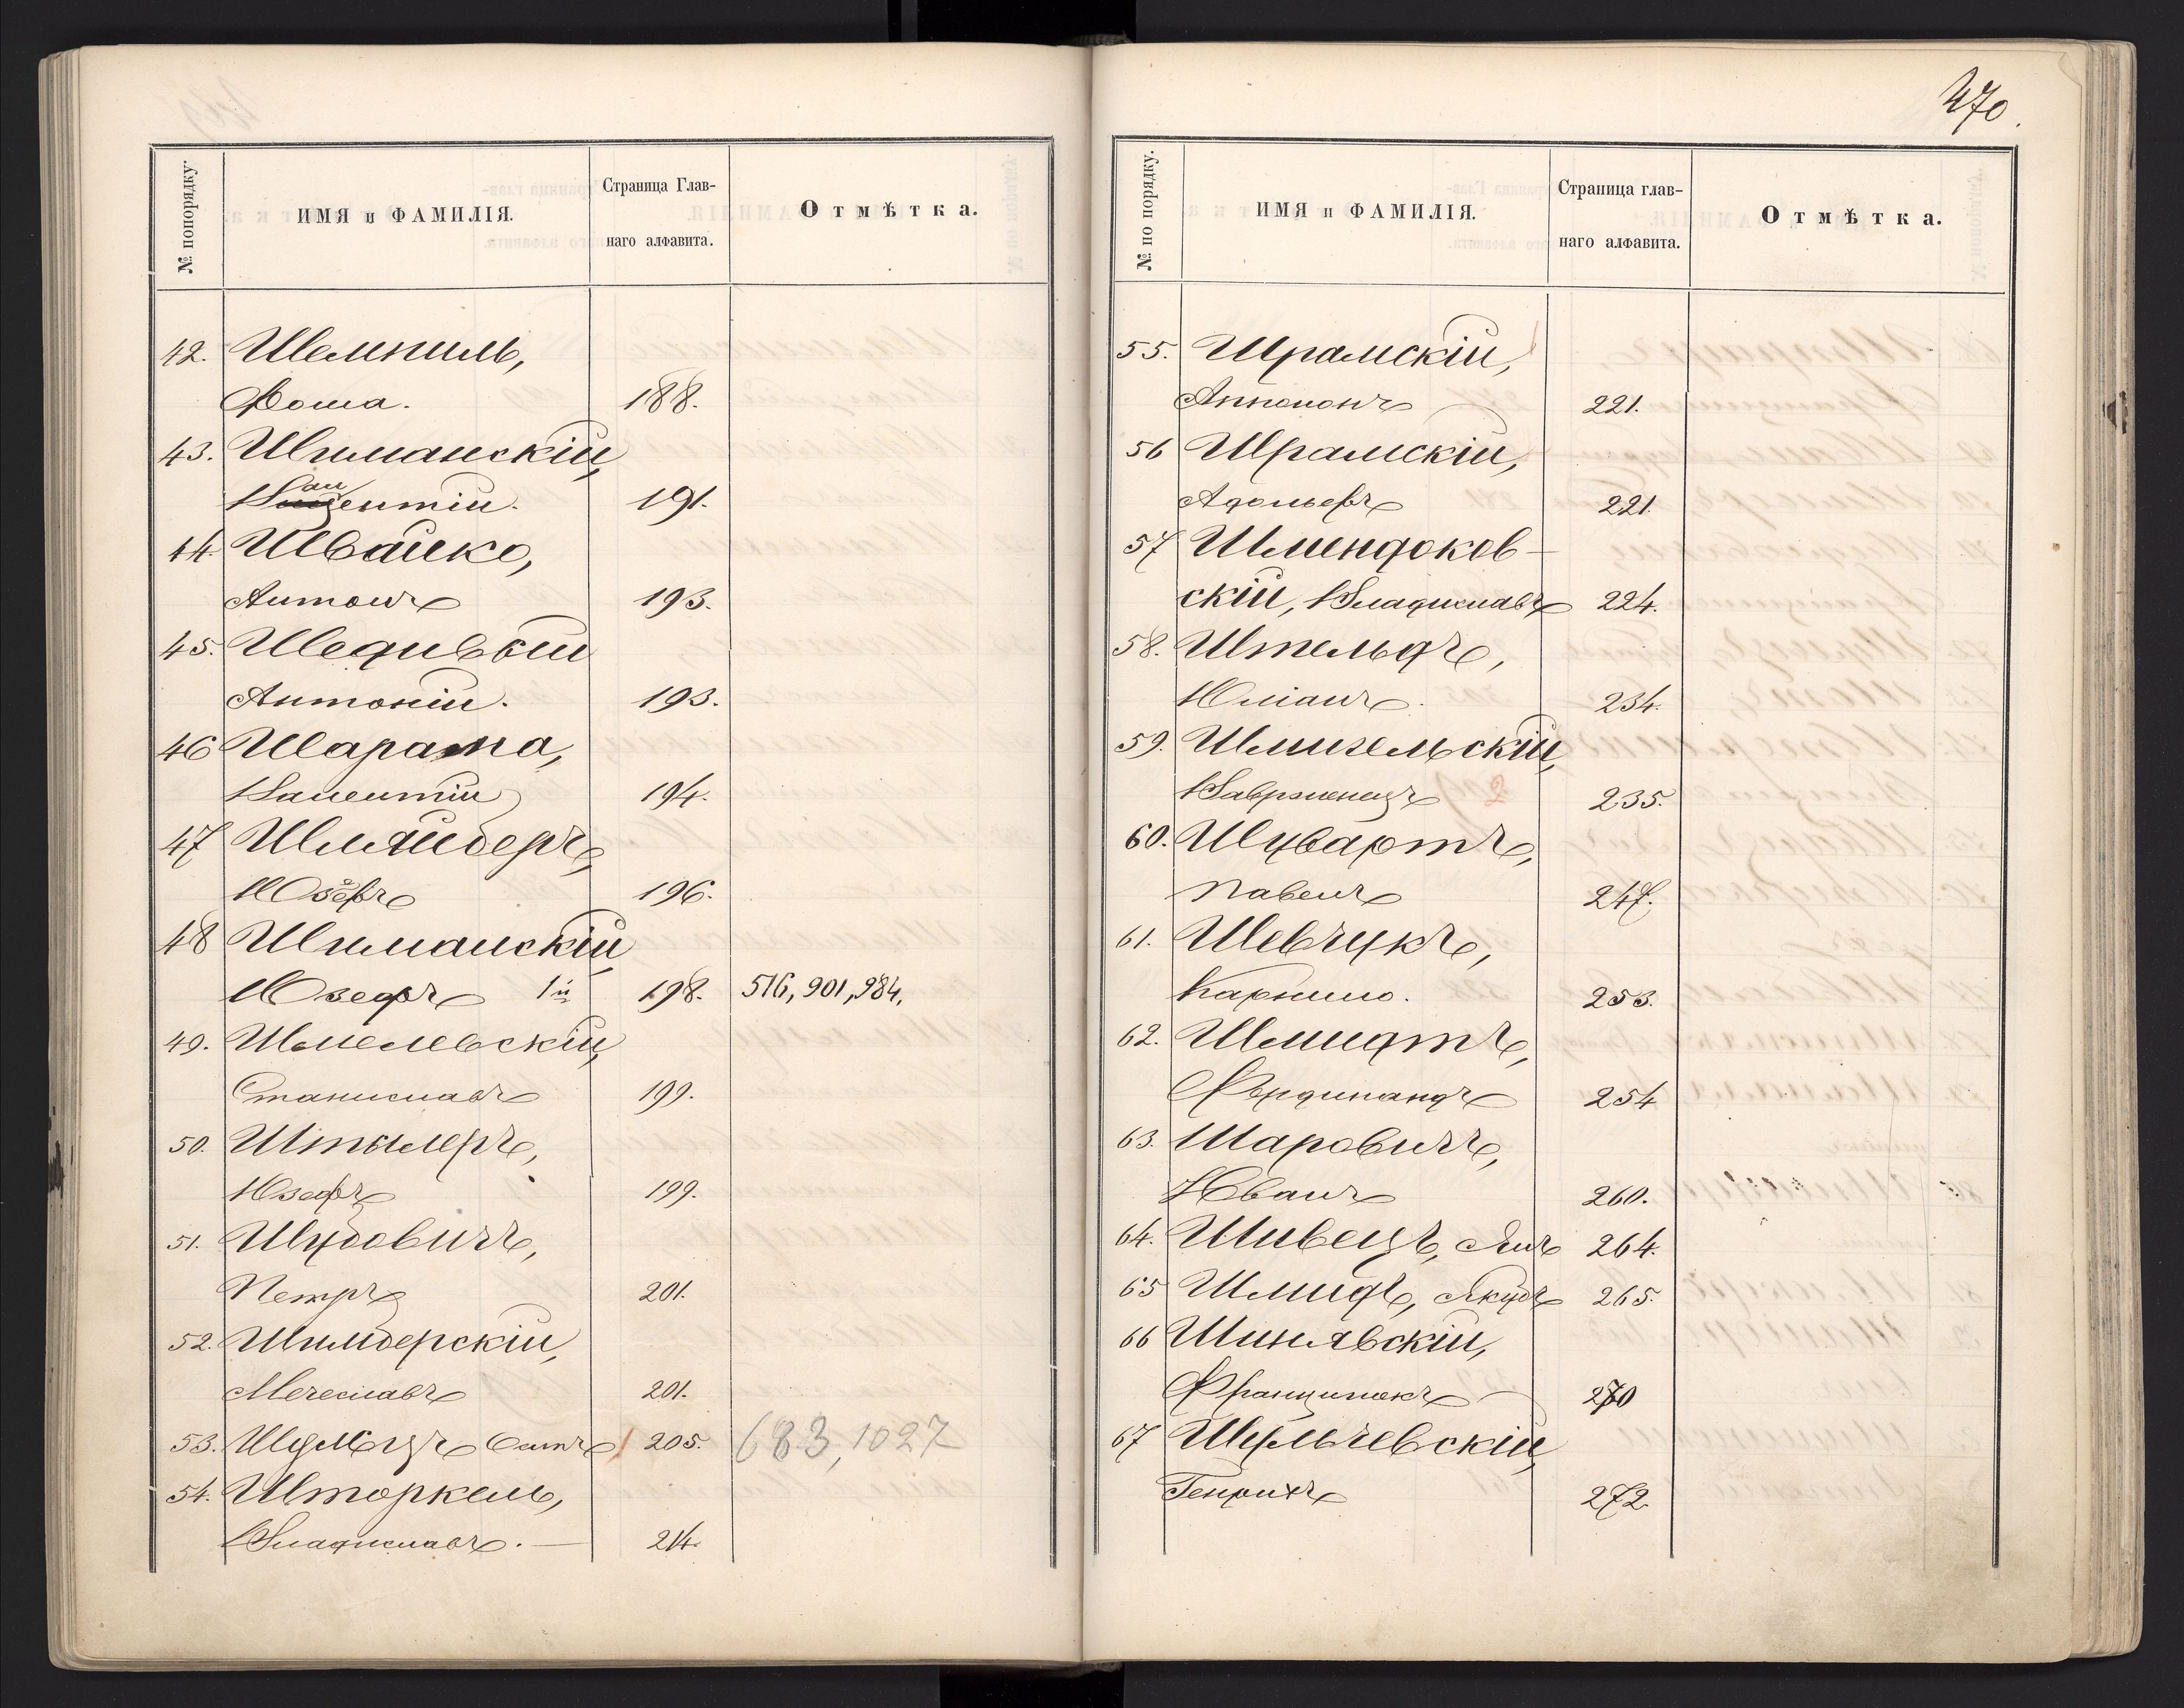 470.
№ попорядку.
ИМЯ и ФАМИЛІЯ.
Страница Глав-
наго алфавита.
Отмѣтка.
42. Шемпиль,
Фома. 188.
43. Шиманскій,
Валентій. 191.
44. Швайко,
Антонъ 193.
45. Шедивый
Антоній. 193.
46 Шарапа,
Валентій 194.
47 Шляйберъ,
Юзефъ 196.
48 Шиманскій,
Юзефъ 1й 198. 516, 901, 984.
49. Шмелевскій,
Станиславъ 199.
50. Штылеръ,
Юзефъ 199.
51. Шубовичъ,
Петръ 201.
52. Шимберскій,
Мечеславъ 201.
53. Шульцъ 205. 683, 1027
54. Шторкель,
Владиславъ. — 214.
№ по порядку.
ИМЯ и ФАМИЛІЯ.
Страница глав-
наго алфавита.
Отмѣтка.
55. Шрамскій,
221.
56 Шрамскій,
Адольфъ 221.
57 Шмендоков-
скій, Владиславъ 224.
58. Штельдъ,
Юліанъ. 234.
59. Шмигельскій,
Вавржинецъ 2 235.
60. Шувартъ,
Павелъ 247.
61. Шевчукъ,
Карнило. 253.
62. Шмидтъ,
Фердинандъ 254
63. Шаровичъ,
Иванъ 260.
64. Шивецъ, Янъ 264.
65 Шмидъ, Якубъ 265.
66 Шинявскій,
Францишекъ 270
67 Шульчевскій,
Генрихъ 272.